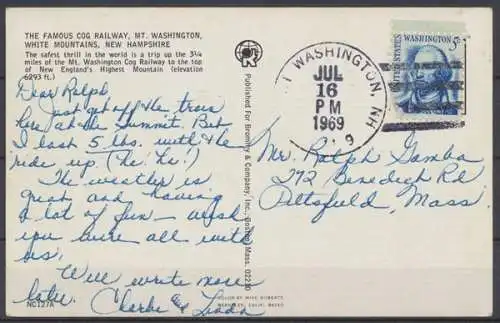 THE FAMOUS COG RAILWAY, MT. WASHINGTON,
WHITE MOUNTAINS, NEW HAMPSHIRE
The safest thrill in the world is a trip up the 3¼
miles of the Mt. Washington Cog Railway to the top
of New England's Highest Mountain (elevation
6293 ft.)
Dear Ralph,
Just got off the train
here at the Summit. But
I lost 5 lbs. with the
ride up (he! he!)
The weather is
great and having
a lot of fun - wish
you were all with
us.
Will write more
later.
Clarke & Linda
NC127A
Published For Bromley & Company, Inc., Boston, Mass. 02210
COLOR BY MIKE ROBERTS
BERKELEY, CALIF. 94710
T WASHINGTON, NH
JUL
16
PM
1969
UNITED STATES
5¢
WASHINGTON
Mr. Ralph Gamba
272 Benedict Rd
Pittsfield, Mass.